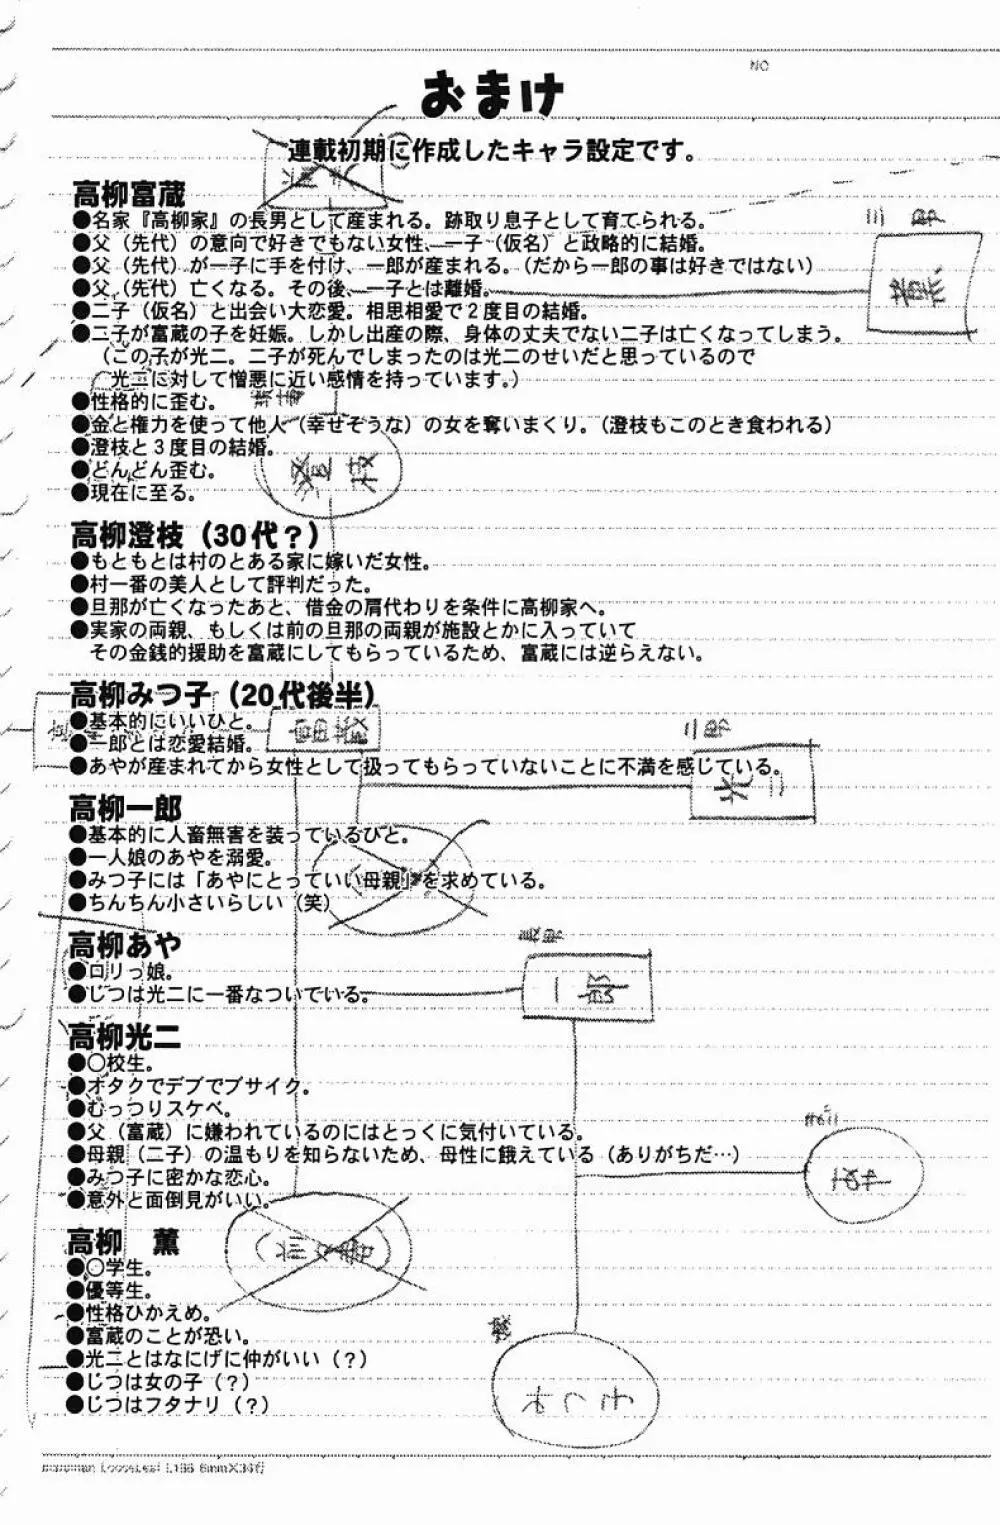 NO
おまけ
連載初期に作成したキャラ設定です。
高柳富蔵
●名家『高柳家』の長男として産まれる。跡取り息子として育てられる。
●父（先代）の意向で好きでもない女性、一子（仮名）と政略的に結婚。
●父（先代）が一子に手を付け、一郎が産まれる。（だから一郎の事は好きではない）
●父（先代）亡くなる。その後、一子とは離婚。
●二子（仮名）と出会い大恋愛。相思相愛で２度目の結婚。
●二子が富蔵の子を妊娠。しかし出産の際、身体の丈夫でない二子は亡くなってしまう。
（この子が光二。二子が死んでしまったのは光二のせいだと思っているので
光二に対して憎悪に近い感情を持っています。）
●性格的に歪む。
●金と権力を使って他人（幸せそうな）の女を奪いまくり。（澄枝もこのとき食われる）
●澄枝と３度目の結婚。
●どんどん歪む。
●現在に至る。
三男
薫
澄枝
高柳澄枝（30代？）
●もともとは村のとある家に嫁いだ女性。
●村一番の美人として評判だった。
●旦那が亡くなったあと、借金の肩代わりを条件に高柳家へ。
●実家の両親、もしくは前の旦那の両親が施設とかに入っていて
その金銭的援助を富蔵にしてもらっているため、富蔵には逆らえない。
高柳みつ子（20代後半）
●基本的にいいひと。
●一郎とは恋愛結婚。
●あやが産まれてから女性として扱ってもらっていないことに不満を感じている。
富蔵
二男
光二
高柳一郎
●基本的に人畜無害を装っているひと。
●一人娘のあやを溺愛。
●みつ子には「あやにとっていい母親」を求めている。
●ちんちん小さいらしい（笑）
長男
一郎
高柳あや
●ロリっ娘。
●じつは光二に一番なついている。
高柳光二
●〇校生。
●オタクでデブでブサイク。
●むっつりスケベ。
●父（富蔵）に嫌われているのにはとっくに気付いている。
●母親（二子）の温もりを知らないため、母性に餓えている（ありがちだ…）
●みつ子に密かな恋心。
●意外と面倒見がいい。
高柳　薫
●〇学生。
●優等生。
●性格ひかえめ。
●富蔵のことが恐い。
●光二とはなにげに仲がいい（？）
●じつは女の子（？）
●じつはフタナリ（？）
みつ子